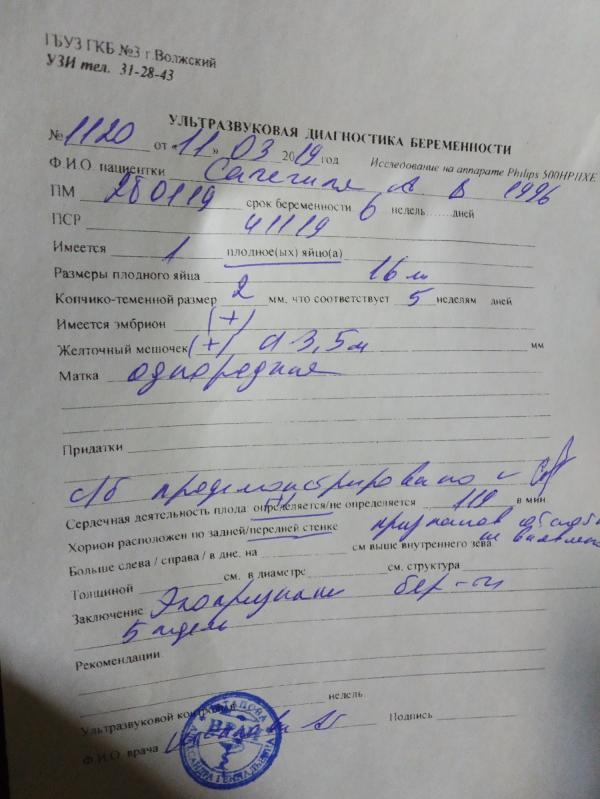 ГБУЗ ГКБ №3 г.Волжский
УЗИ тел. 31-28-43
УЛЬТРАЗВУКОВАЯ ДИАГНОСТИКА БЕРЕМЕННОСТИ
№ 1120 от «11» 03 2019 год Исследование на аппарате Philips 500HPIIXE
Ф.И.О. пациентки А В 1996
ПМ 280119 срок беременности 6 недель......дней
ПСР 41119
Имеется 1 плодное(ых) яйцо(а)
Размеры плодного яйца 16 м
Копчико-теменной размер 2 мм, что соответствует 5 неделям дней
Имеется эмбрион (+)
Желточный мешочек (+) d 3,5 м мм
Матка однородная
Придатки
с/б продемонстрировано
Сердечная деятельность плода определяется/не определяется 119 в мин
Хорион расположен по задней/передней стенке признаков отслойки
не выявлено
Больше слева / справа / в дне. на см выше внутреннего зева
Толщиной см. в диаметре см. структура
Заключение Эхопризнаки бер-ти
5 недель
Рекомендации
Ультразвуковой контроль недель
Ф.И.О. врача Подпись
ВРАЧ